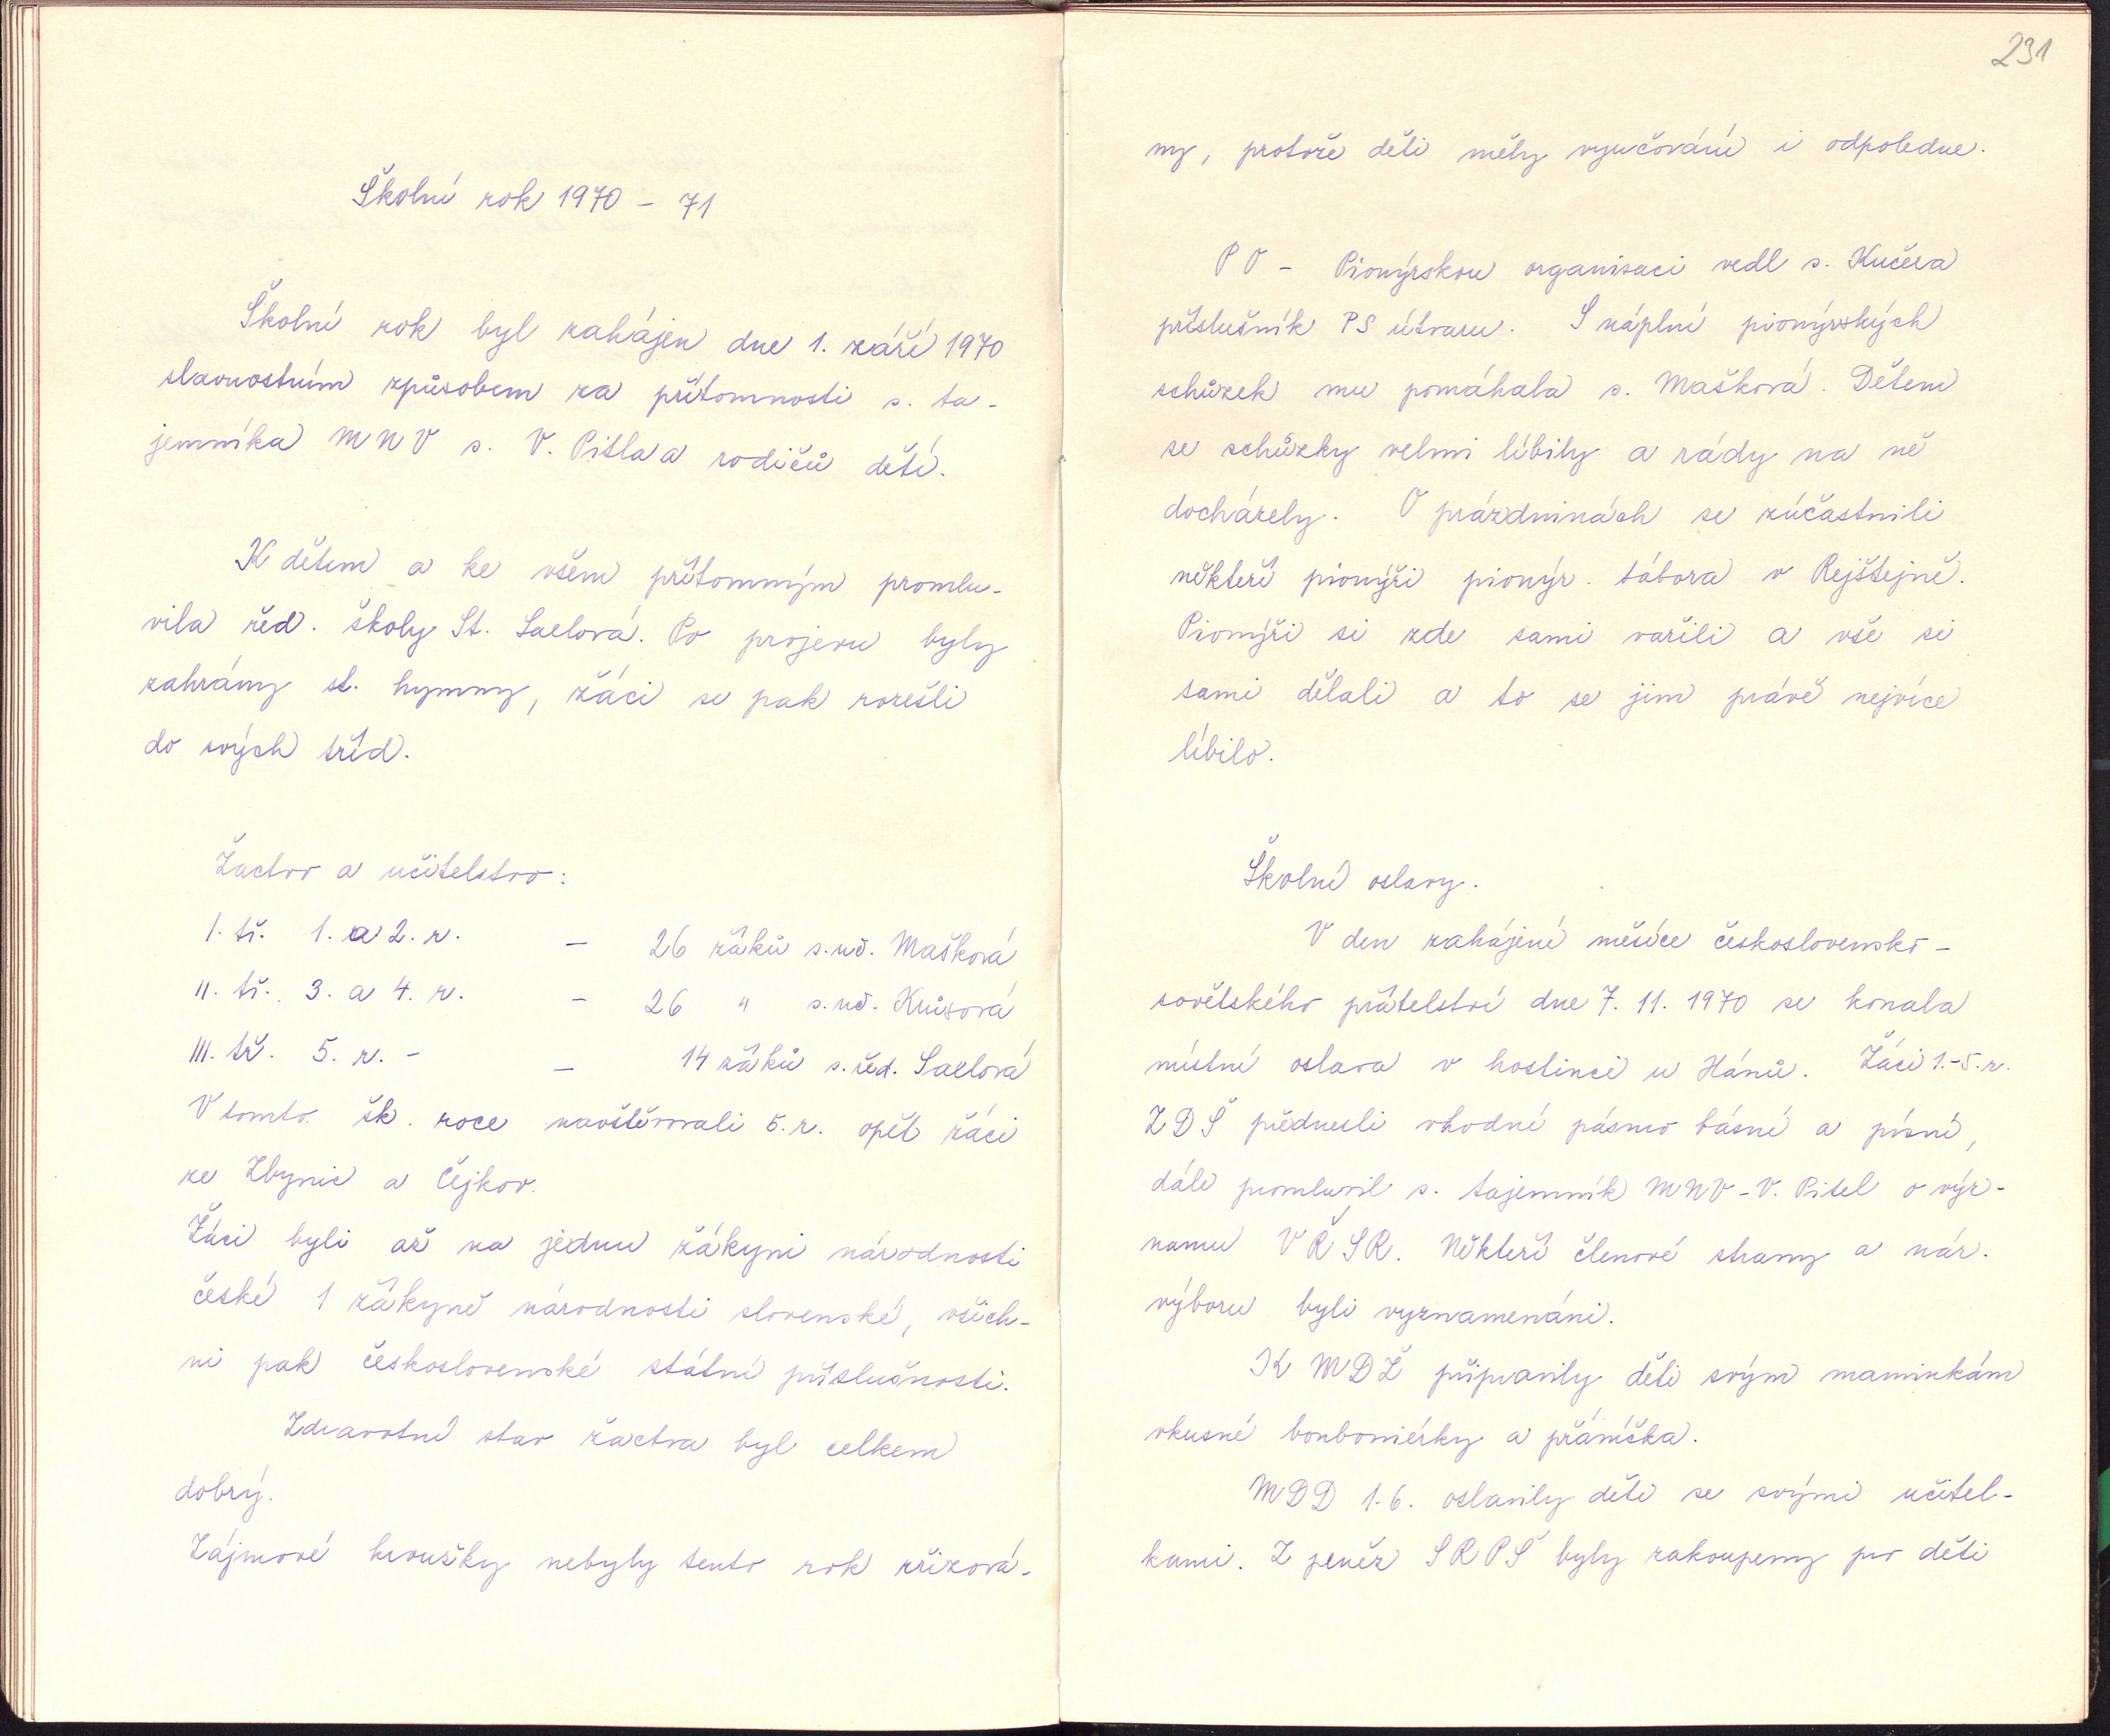 Školní rok 1970 - 71
Školní rok byl zahájen dne 1. září 1970
slavnostním způsobem za přítomnosti s. ta-
jemníka MNV s. V. Pitla a rodičů dětí.
K dětem a ke všem přítomným promlu-
vila řed. školy St. Saelová. Po projevu byly
zahrány st. hymny, žáci se pak rozešli
do svých tříd.
Žactvo a učitelstvo:
I. tř. 1. a 2. r. - 26 žáků s. uč. Mašková
II. tř. 3. a 4. r. - 26 " s. uč.
III. tř. 5. r. - - 14 žáků s. řed. Saelová
V tomto šk. roce navštěvovali 5. r. opět žáci
ze Zbynic a Čejkov.
Žáci byli až na jednu žákyni národnosti
české 1 žákyně národnosti slovenské, všich-
ni pak československé státní příslušnosti.
Zdravotní stav žactva byl celkem
dobrý.
Zájmové kroužky nebyly tento rok zřizová-
231
ny, protože děti měly vyučování i odpoledne.
PO - Pionýrskou organisaci vedl s. Kučera
příslušník PS útvaru. S náplní pionýrských
schůzek mu pomáhala s. Mašková. Dětem
se schůzky velmi líbily a rády na ně
docházely. O prázdninách se zúčastnili
někteří pionýři pionýr. tábora v Rejštejně.
Pionýři si zde sami vařili a vše si
sami dělali a to se jim právě nejvíce
líbilo.
Školní oslavy.
V den zahájení měsíce československo-
sovětského přátelství dne 7. 11. 1970 se konala
místní oslava v hostinci u Hánů. Žáci 1.-5. r.
ZDŠ přednesli vhodné pásmo básní a písní,
dále promluvil s. tajemník MNV - V. Pitel o výz-
namu VŘSR. Někteří členové strany a nár.
výboru byli vyznamenáni.
K MDŽ připravily děti svým maminkám
vkusné bonboniérky a přáníčka.
MDD 1. 6. oslavily děti se svými učitel-
kami. Z peněz SRPŠ byly zakoupeny pro děti